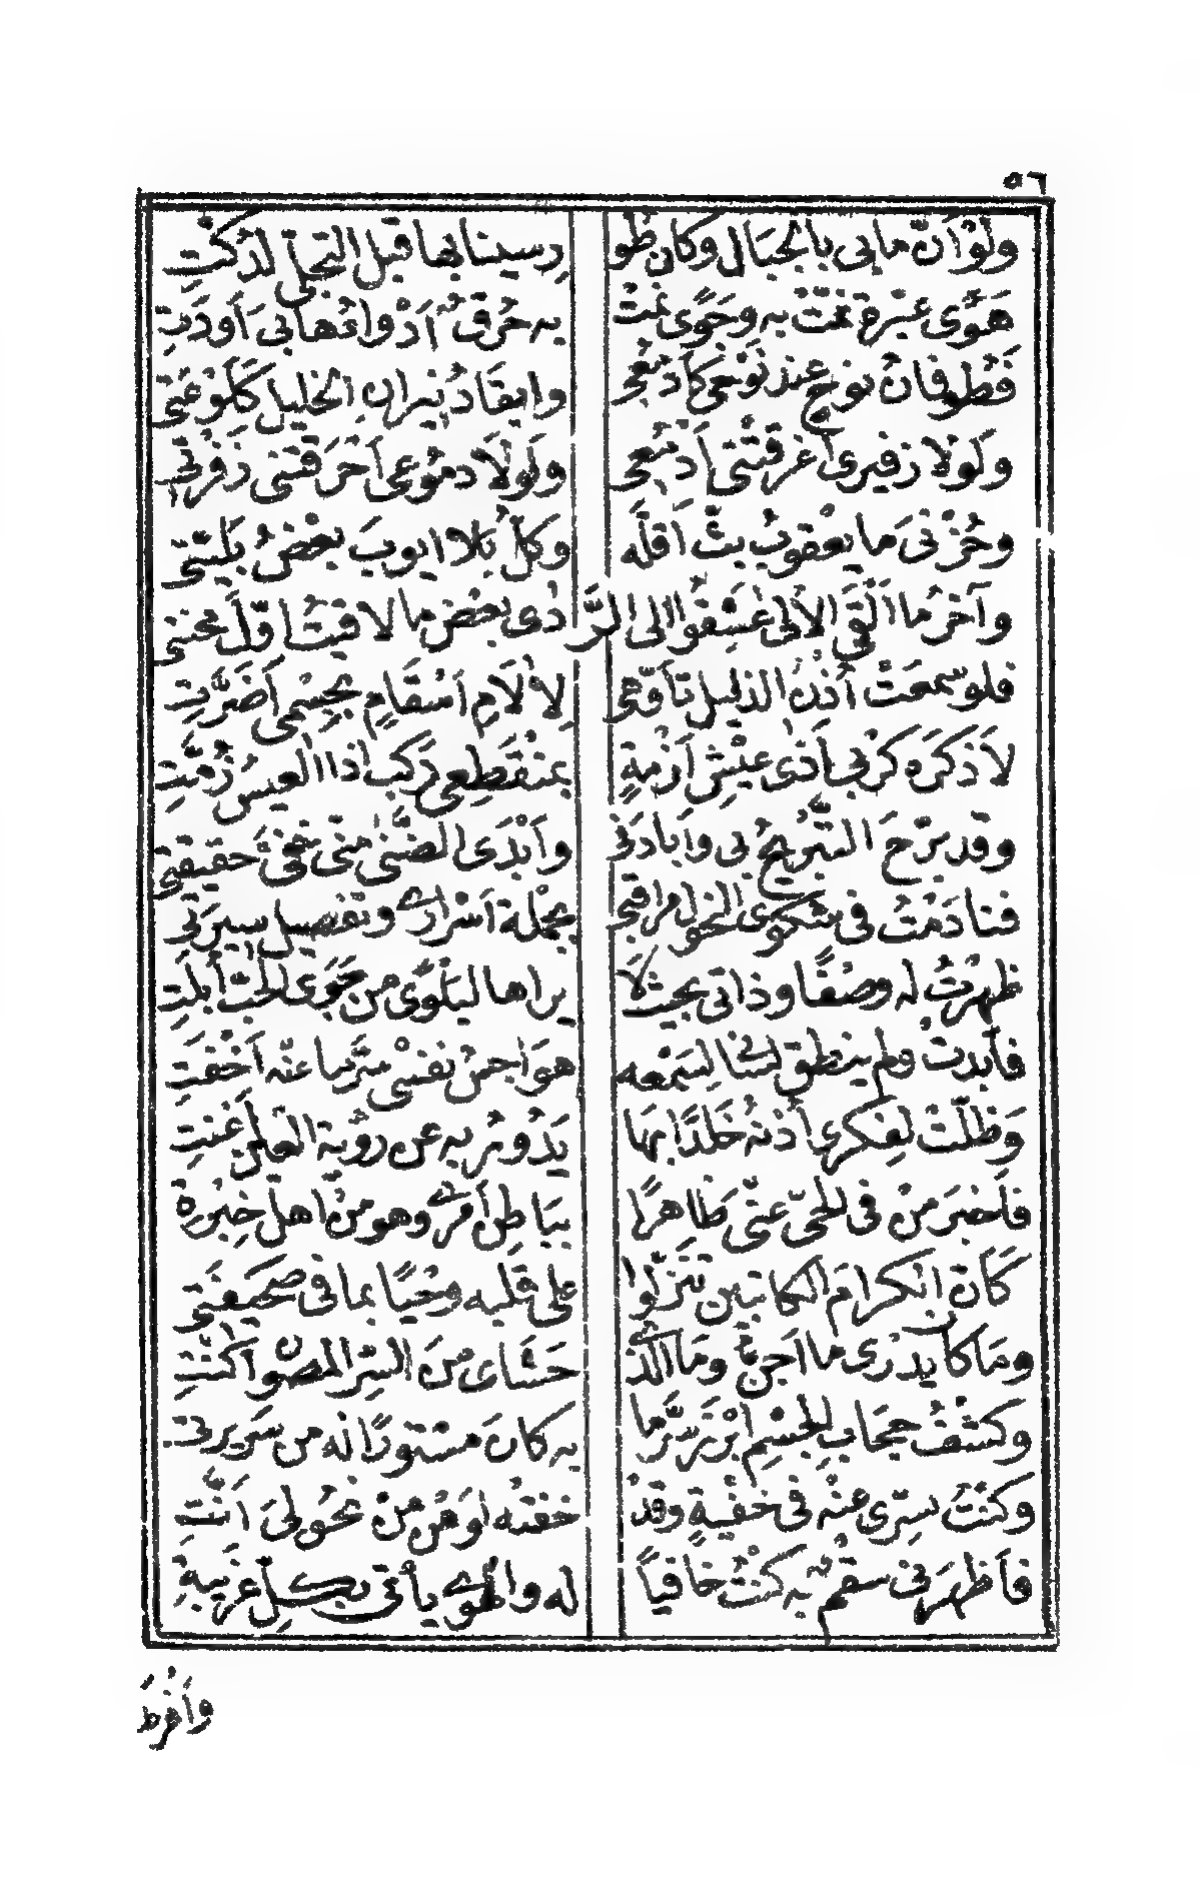 ٥٦
ولو أنّ ما بى بالجبال وكان طو رسينا بها قبل التجلى لدُكّتِ
هَوًى عبْرة نمّتْ به وجَوًى نمتْ به حُرَق أدْواءُها بىَ أودَتِ
فَطُوفانُ نوحٍ عند نَوْحى كأدمُعى وايقادُ نيرانِ الخليل كلَوْعتى
ولولا زفيرى أغرقتْنى أدْمُعى ولولَا دمُوعى أحرَقتنى زَفْرتى
وحُزْنىَ ما يعْقوبُ بثَّ أقلَّه وكلُّ بُلا ايوبَ بعْضُ بَليّتى
وآخرُ ما القَى الأولى عَشِقُوا الى الرَّ دَى بعْضُ ما لاقيتُ اوّلَ محنتى
فلو سَمعَتْ أُذنُ الذليل تأوّهى لِالَامِ أسْقامٍ بجسْمى أضرَّتِ
لأذكَرَه كرْبى أذَى عيْشِ أزْمةٍ بمنْقطِعى رَكبٍ اذا العيسُ زُمّتِ
وقد برّحَ التبْريحُ بى وأبادَنى وأبْدَى الضَّنى منّى خفىَّ حقيقتى
فنادمْتُ فى شكوى النحول مراقبى بجمْلة أسْرارى وتفصيل سيرَتى
ظهرْتُ له وصْفًا وذاتى بحيثُ لَا يراها لبَلوًى من جَوَى الحبّ أبْلَتِ
فأبدتْ ولم ينطق لسَانى لسَمْعه هَواجسُ نفسى سرَّ ما عنْه أخْفَتِ
وَظلّتْ لفكرى أُذنُه خَلدًا بها يَدُورُ به عن رؤية العيْنِ أغنتِ
فأخبَرَ منْ فى الحىّ عنّى ظاهرًا ببَاطِن أمْرى وهو منْ أهل خبْرِهْ
كأنّ الكرامَ الكاتبين تنَزّلوا على قلبه وحْيًا بما فى صحيفتى
وما كان يدْرى ما أجنُّ وما الذى حشَاىَ منَ السِّر المصُون أكنَّتِ
وكشْفُ حجَابِ الجسْمِ أبرَزَ سِرَّ ما به كانَ مسْتورًا له من سَريرتى
وكنْتُ بسِرّى عنْه فى خفْيةٍ وقدْ خفتْه لوَهْنٍ منْ نحُولىَ أنّتى
فأظهرَنى سقْمٌ به كنْتُ خافياً له والهوى يأتى بكلِّ غريبةِ
وأفْرطَ